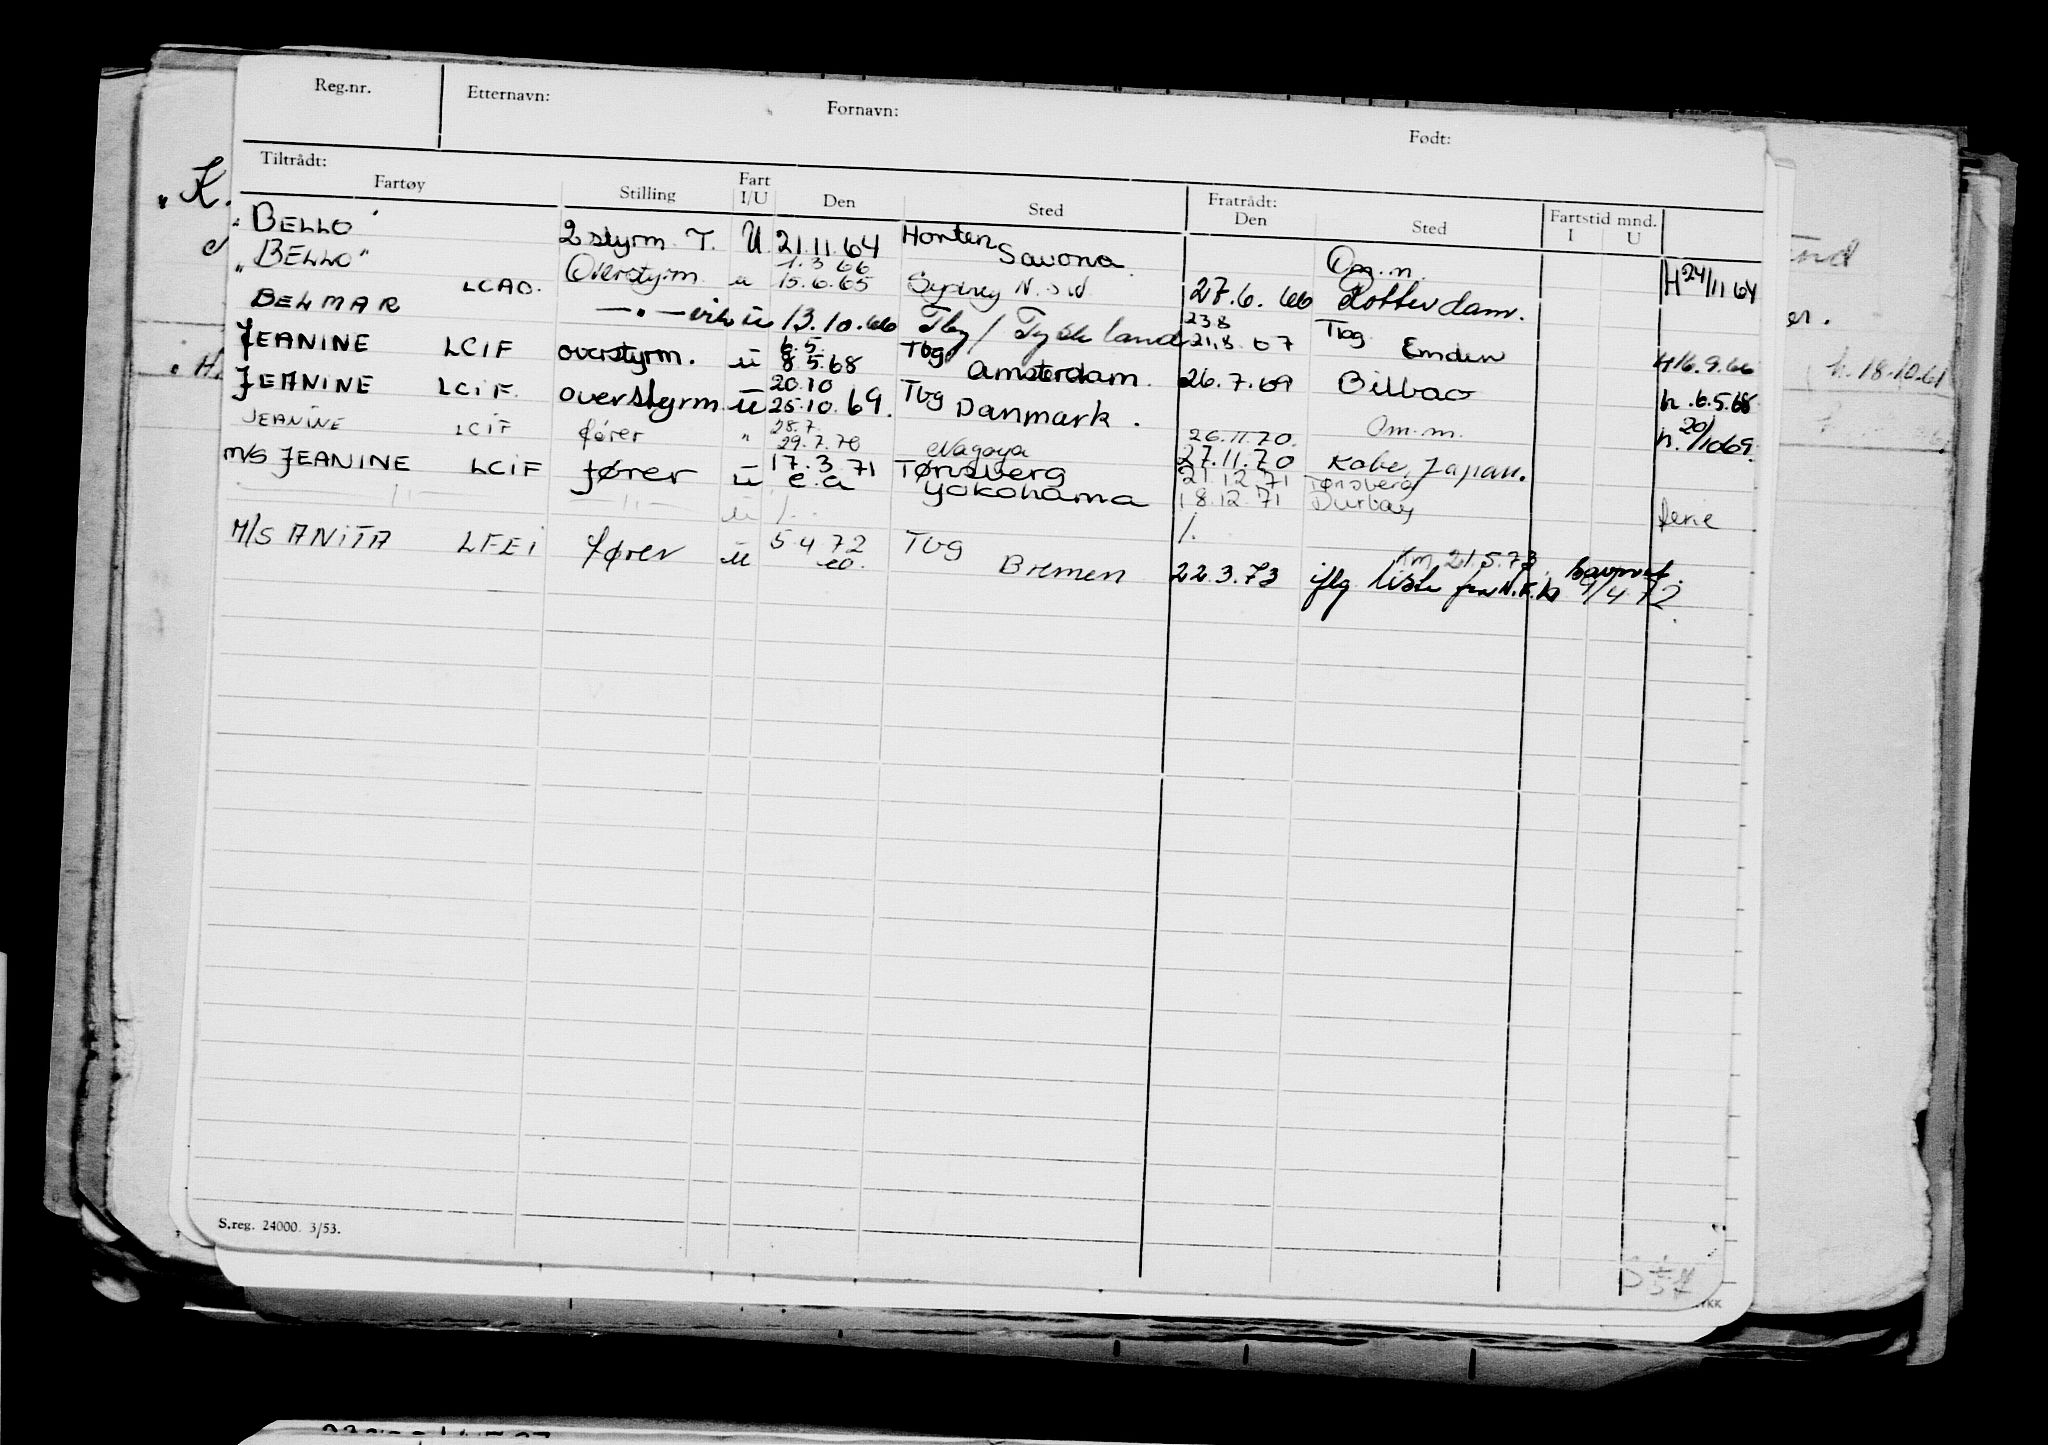 Reg.nr. Etternavn: Fornavn: Født:
Tiltrådt: Fratrådt:
Fartøy Stilling Fart I/U Den Sted Den Sted Fartstid mnd. I U
"BELLO" 2 styrm. T. U 21.11.64 Horten Savona Om.m. H 24/11 64
"BELLO" LCAO. Overstyrm. u 1.3 66 15.6.65 Sydney N.S.W 27.6.66 Rotterdam.
BELMAR —"— u 13.10.66 Tbg / Tyskland 23.8 21.8.67 Tbg Emden H 16.9.66
JEANINE LCIF overstyrm. u 6.5. 8.5.68 Tbg Amsterdam. 26.7.69 Bilbao h.6.5.68
JEANINE LCIF. overstyrm u 20.10 25.10.69. Tbg Danmark. Om.m. h. 20/10 69.
JEANINE LCIF fører " 28.7. 29.7.70 Nagoya 26.11.70. 27.11.70 Kobe, Japan.
M/S JEANINE LCIF fører u 17.3.71 e.a Tønsberg Yokohama 21.12.71 Tønsberg 18.12.71 Durban
—"— —"— u /. /. ferie
M/S ANITA LFEI fører u 5.4.72 eo. Tbg Bremen 22.3.73 Km 21.5.73.
iflg liste fra N.F.D 9/4 72.
S.reg. 24000. 3/53.
"K.
h.18.10.61